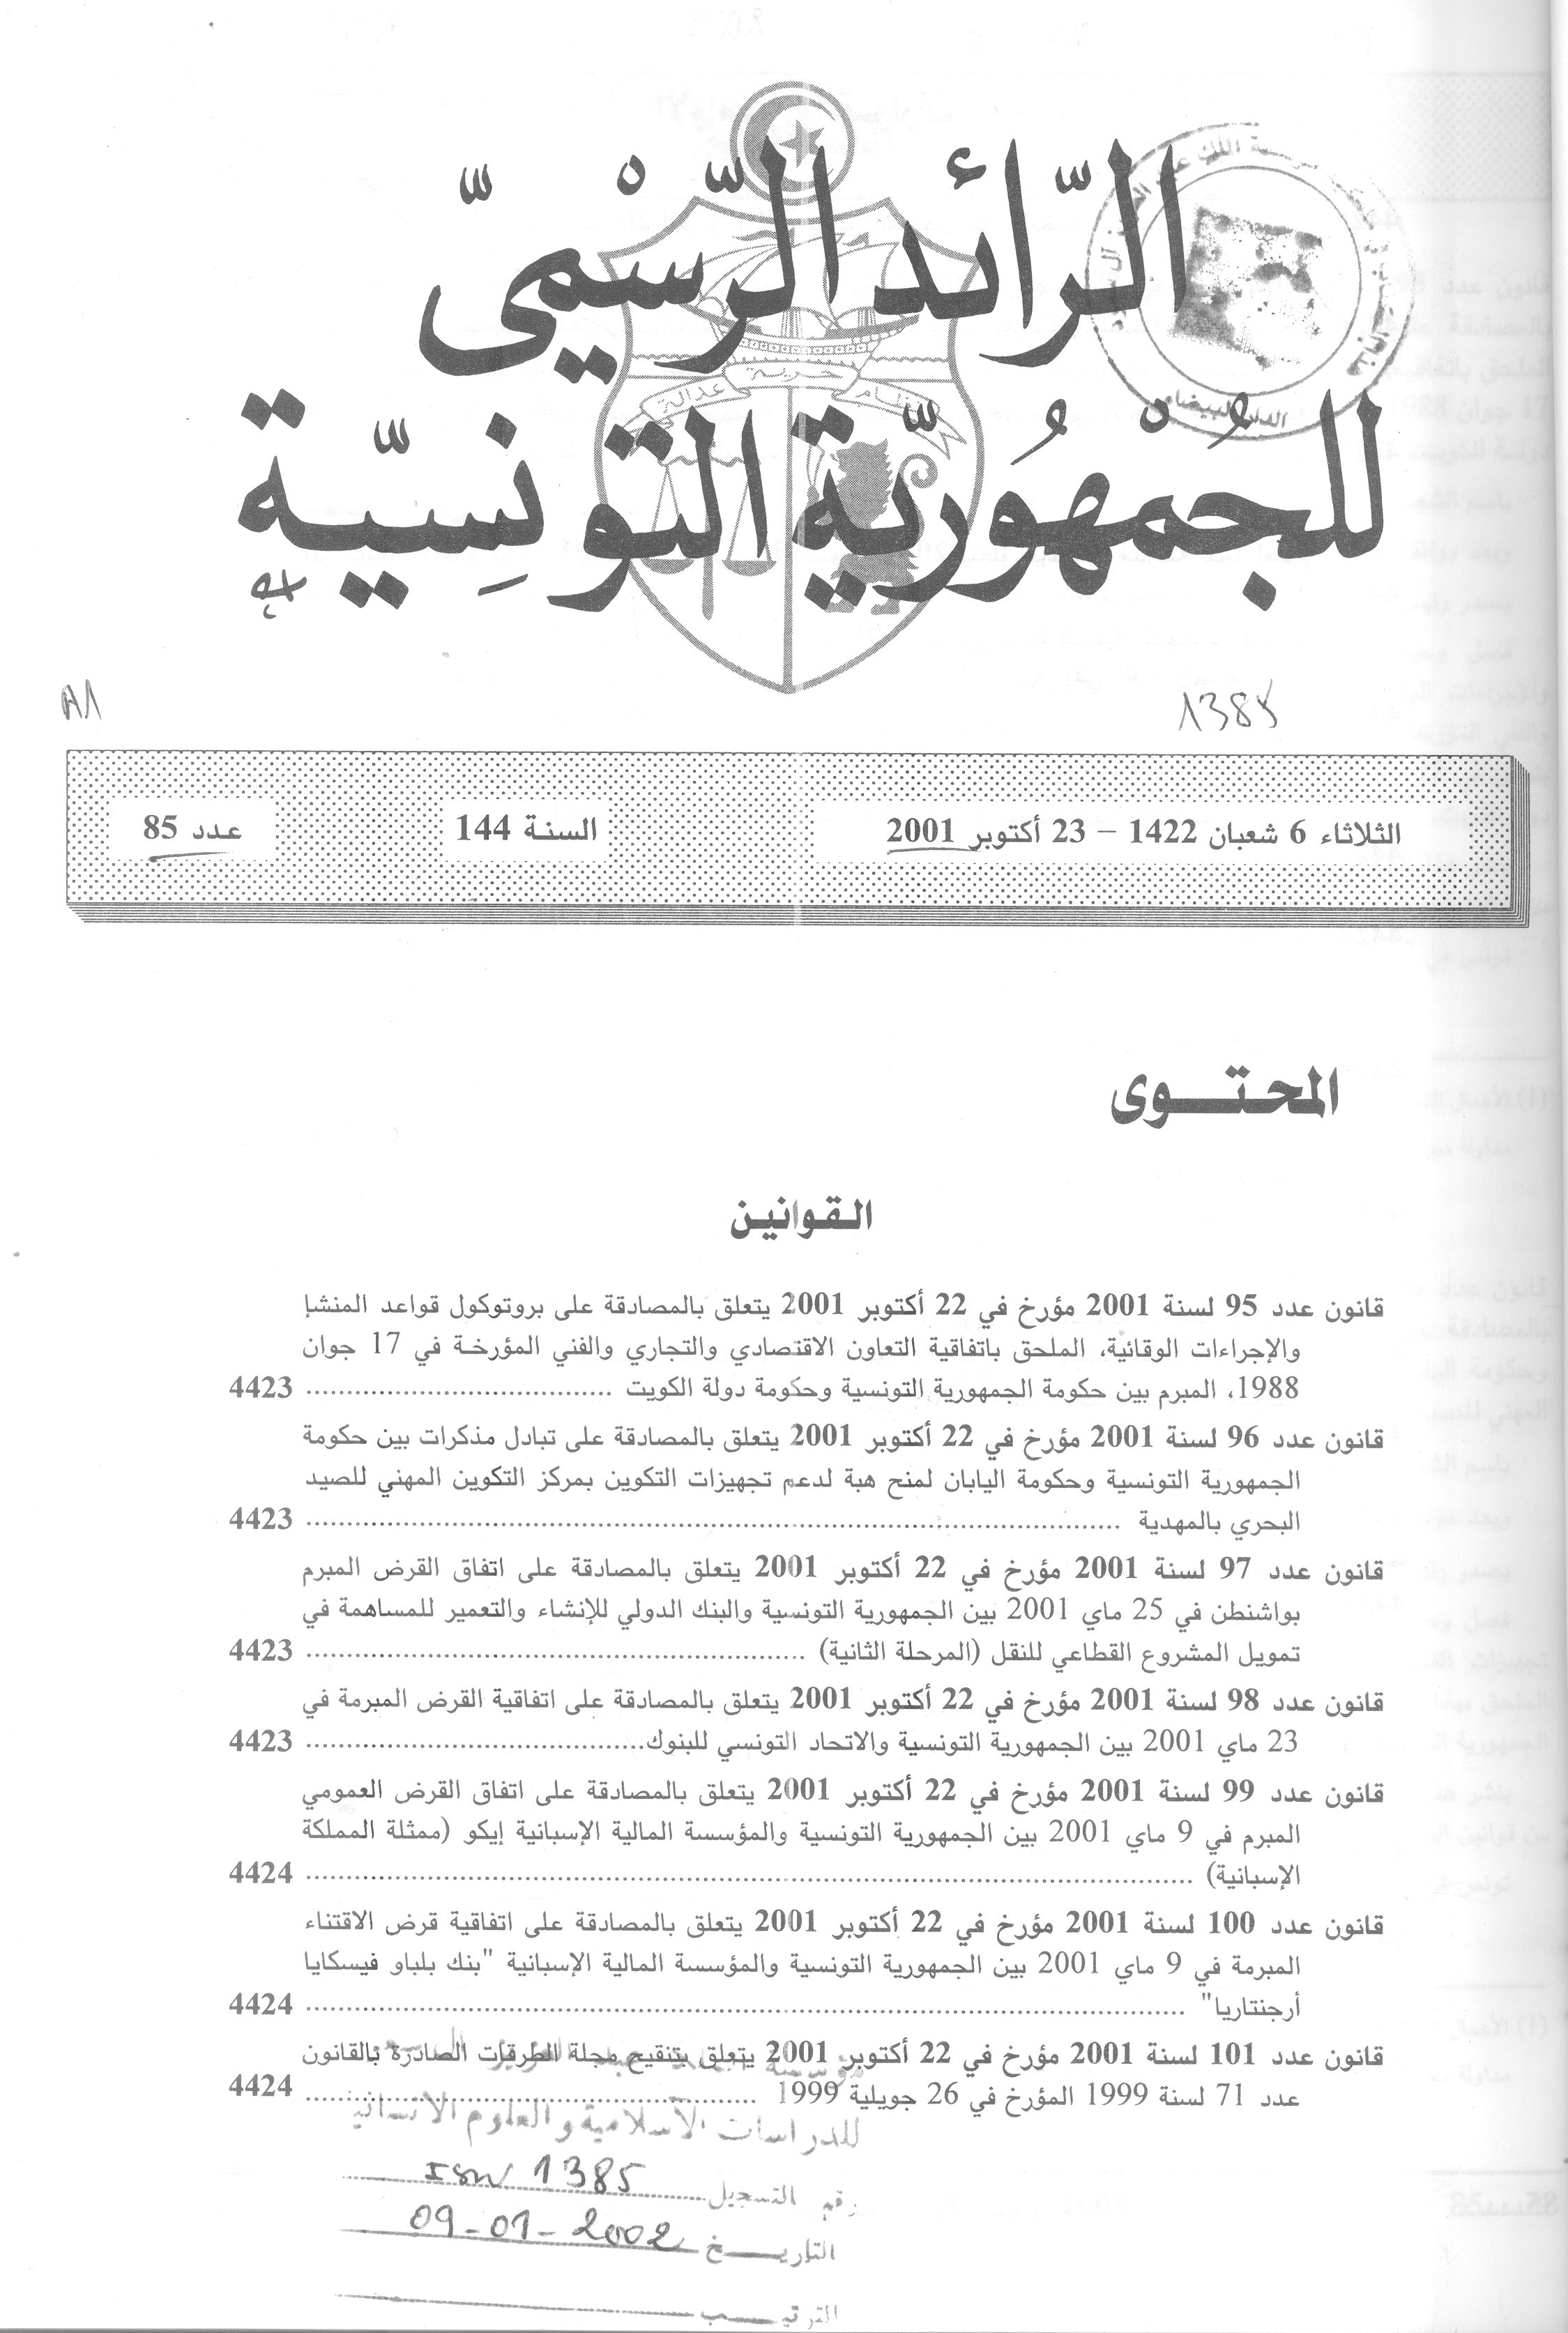 الرّائد الرّسْميّ
نظام حرية عدالة
للجُمْهُوريّة التونِسيّة
الدار البيضاء
A1
1385
الثلاثاء 6 شعبان 1422 – 23 أكتوبر 2001
السنة 144
عدد 85
المحتوى
القوانين
قانون عدد 95 لسنة 2001 مؤرخ في 22 أكتوبر 2001 يتعلق بالمصادقة على بروتوكول قواعد المنشإ
والإجراءات الوقائية، الملحق باتفاقية التعاون الاقتصادي والتجاري والفني المؤرخة في 17 جوان
1988، المبرم بين حكومة الجمهورية التونسية وحكومة دولة الكويت ...................................... 4423
قانون عدد 96 لسنة 2001 مؤرخ في 22 أكتوبر 2001 يتعلق بالمصادقة على تبادل مذكرات بين حكومة
الجمهورية التونسية وحكومة اليابان لمنح هبة لدعم تجهيزات التكوين بمركز التكوين المهني للصيد
البحري بالمهدية ...................................... 4423
قانون عدد 97 لسنة 2001 مؤرخ في 22 أكتوبر 2001 يتعلق بالمصادقة على اتفاق القرض المبرم
بواشنطن في 25 ماي 2001 بين الجمهورية التونسية والبنك الدولي للإنشاء والتعمير للمساهمة في
تمويل المشروع القطاعي للنقل (المرحلة الثانية) ...................................... 4423
قانون عدد 98 لسنة 2001 مؤرخ في 22 أكتوبر 2001 يتعلق بالمصادقة على اتفاقية القرض المبرمة في
23 ماي 2001 بين الجمهورية التونسية والاتحاد التونسي للبنوك...................................... 4423
قانون عدد 99 لسنة 2001 مؤرخ في 22 أكتوبر 2001 يتعلق بالمصادقة على اتفاق القرض العمومي
المبرم في 9 ماي 2001 بين الجمهورية التونسية والمؤسسة المالية الإسبانية إيكو (ممثلة المملكة
الإسبانية) ...................................... 4424
قانون عدد 100 لسنة 2001 مؤرخ في 22 أكتوبر 2001 يتعلق بالمصادقة على اتفاقية قرض الاقتناء
المبرمة في 9 ماي 2001 بين الجمهورية التونسية والمؤسسة المالية الإسبانية "بنك بلباو فيسكايا
أرجنتاريا" ...................................... 4424
قانون عدد 101 لسنة 2001 مؤرخ في 22 أكتوبر 2001 يتعلق بتنقيح مجلة الطرقات الصادرة بالقانون
عدد 71 لسنة 1999 المؤرخ في 26 جويلية 1999 ...................................... 4424
للدراسات الاسلامية والعلوم الانسانية
رقم التسجيل 1385
التاريخ 09-01-2002
الترتيب